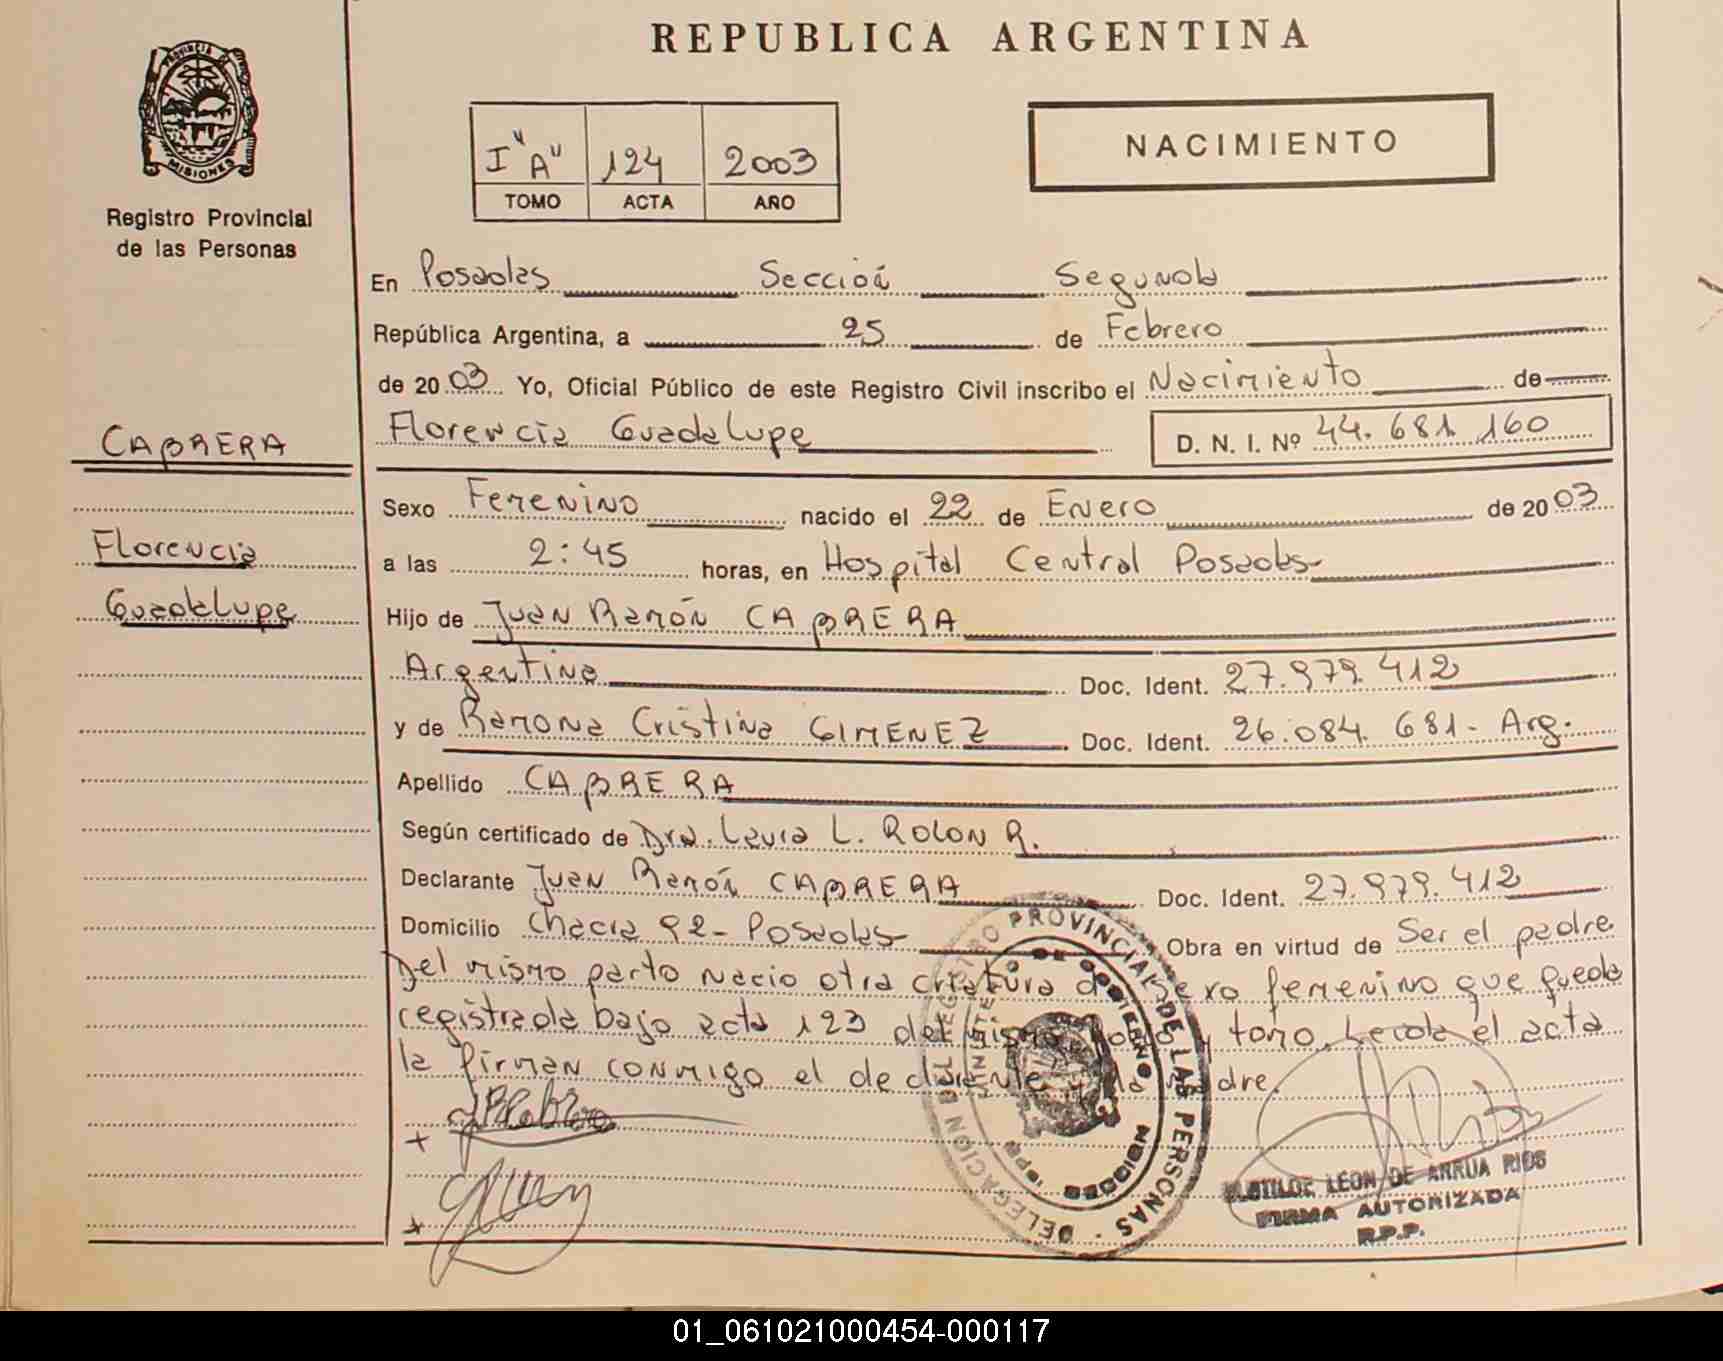 REPUBLICA ARGENTINA
PROVINCIA DE MISIONES
Registro Provincial
de las Personas
I "A" 124 2003
TOMO ACTA AÑO
NACIMIENTO
En Posadas Sección Segunda
República Argentina, a 25 de Febrero
de 20 03 Yo, Oficial Público de este Registro Civil inscribo el Nacimiento de
Florencia Guadalupe D. N. I. Nº 44.681.160
CABRERA
Florencia
Guadalupe
Sexo Femenino nacido el 22 de Enero de 20 03
a las 2:45 horas, en Hospital Central Posadas
Hijo de Juan Ramón CABRERA
Argentina Doc. Ident. 27.979.412
y de Ramona Cristina GIMENEZ Doc. Ident. 26.084.681 - Arg.
Apellido CABRERA
Según certificado de Dra. Laura L. ROLON R.
Declarante Juan Ramón CABRERA Doc. Ident. 27.979.412
Domicilio Chacra 92 - Posadas Obra en virtud de Ser el padre
Del mismo parto nacio otra criatura de sexo femenino que queda
registrada bajo acta 123 del mismo y tomo. Leida el acta
la firman conmigo el declarante y la madre.
DELEGACION DEL REGISTRO PROVINCIAL DE LAS PERSONAS
MINISTERIO DE GOBIERNO
MISIONES
LEON DE ARRUA RIOS
FIRMA AUTORIZADA
R.P.P.
01_061021000454-000117